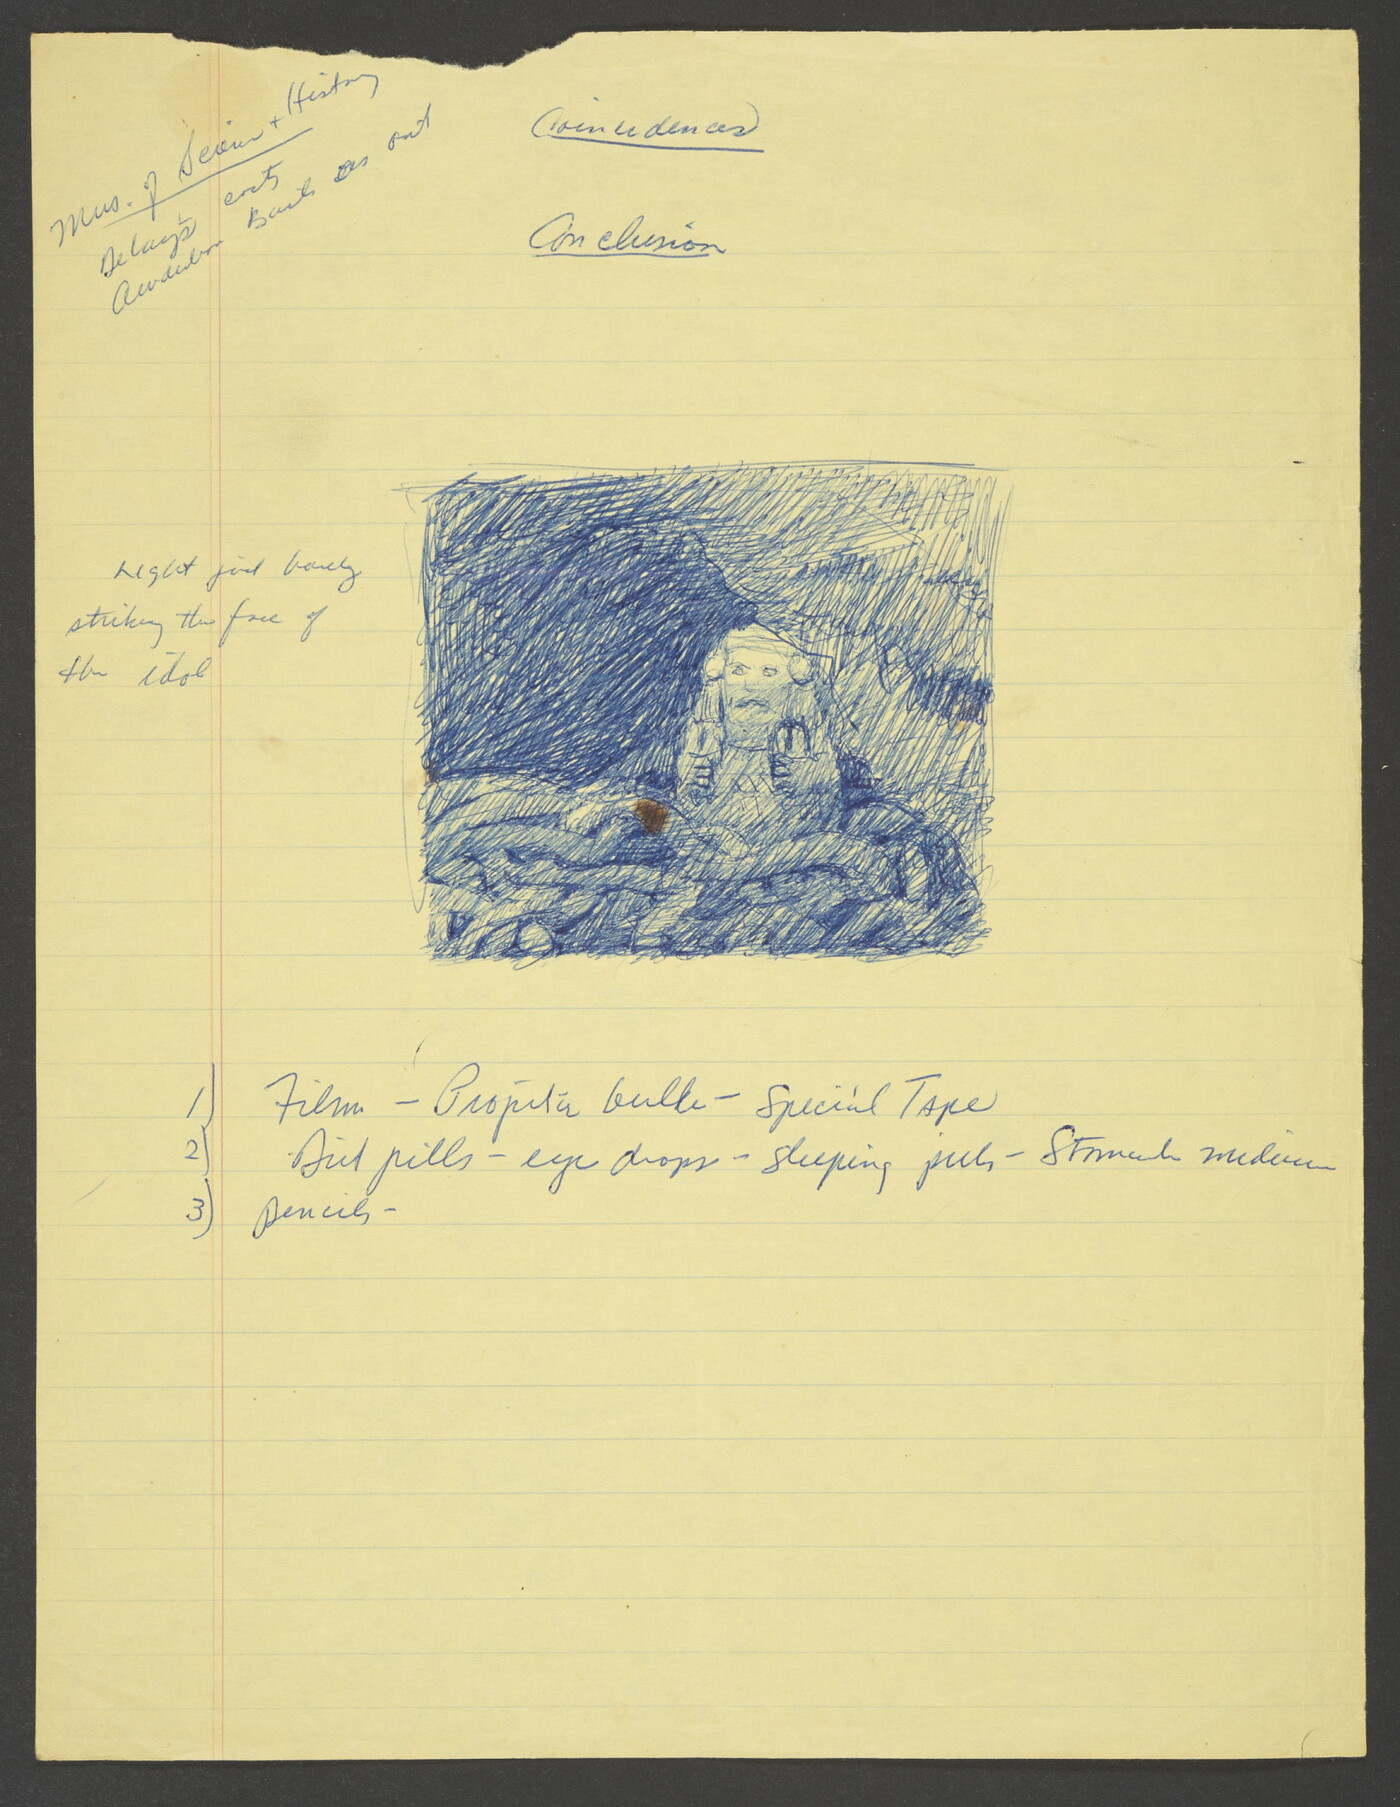 Mus. of Science + History
costs
Audubon out
Coincidences
Conclusion
Light just barely
striking the face of
the idol
1) Film - Projector bulb - Special Tape
2) Diet pills - eye drops - sleeping pills - Stomach medicine
3) pencils -